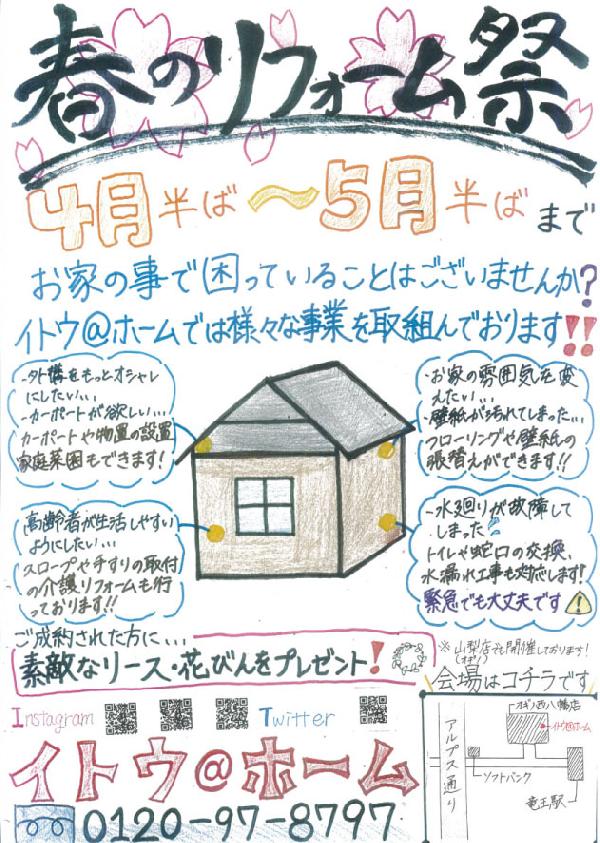 春のリフォーム祭
4月半ば〜5月半ばまで
お家の事で困っていることはございませんか?
イトウ@ホームでは様々な事業を取組んでおります!!
・外構をもっとオシャレ
にしたい...
・カーポートが欲しい...
カーポートや物置の設置
家庭菜園もできます!
・お家の雰囲気を変
えたい...
・壁紙が汚れてしまった...
フローリングや壁紙の
張替えができます!!
高齢者が生活しやすい
ようにしたい...
スロープや手すりの取付
の介護リフォームも行
っております!!
・水廻りが故障して
しまった
トイレや蛇口の交換、
水漏れ工事も対応します!
緊急でも大丈夫です
ご成約された方に...
素敵なリース・花びんをプレゼント!
※山梨店でも開催しております!
会場はコチラです
Instagram
Twitter
イトウ@ホーム
0120-97-8797
オギノ西八幡店
イトウ@ホーム
アルプス通り
ソフトバンク
竜王駅